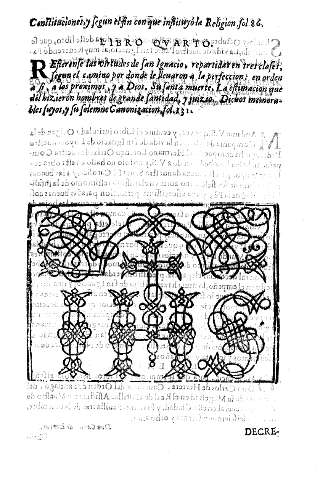 Constituciones, y segun el fin con que instituyò la Religion, fol. 86.
LIBRO QVARTO.
REfierense las virtudes de san Ignacio, repartidas en tres clases;
segun el camino por donde le llenaron a la perfeccion; en orden
a si, a los proximos, y a Dios. Su santa muerte. La estimacion que
del hizieron hombres de grande santidad, y juizio. Dichos memora-
bles suyos, y su solemne Canonizacion, fol. 131.
IHS
DECRE-